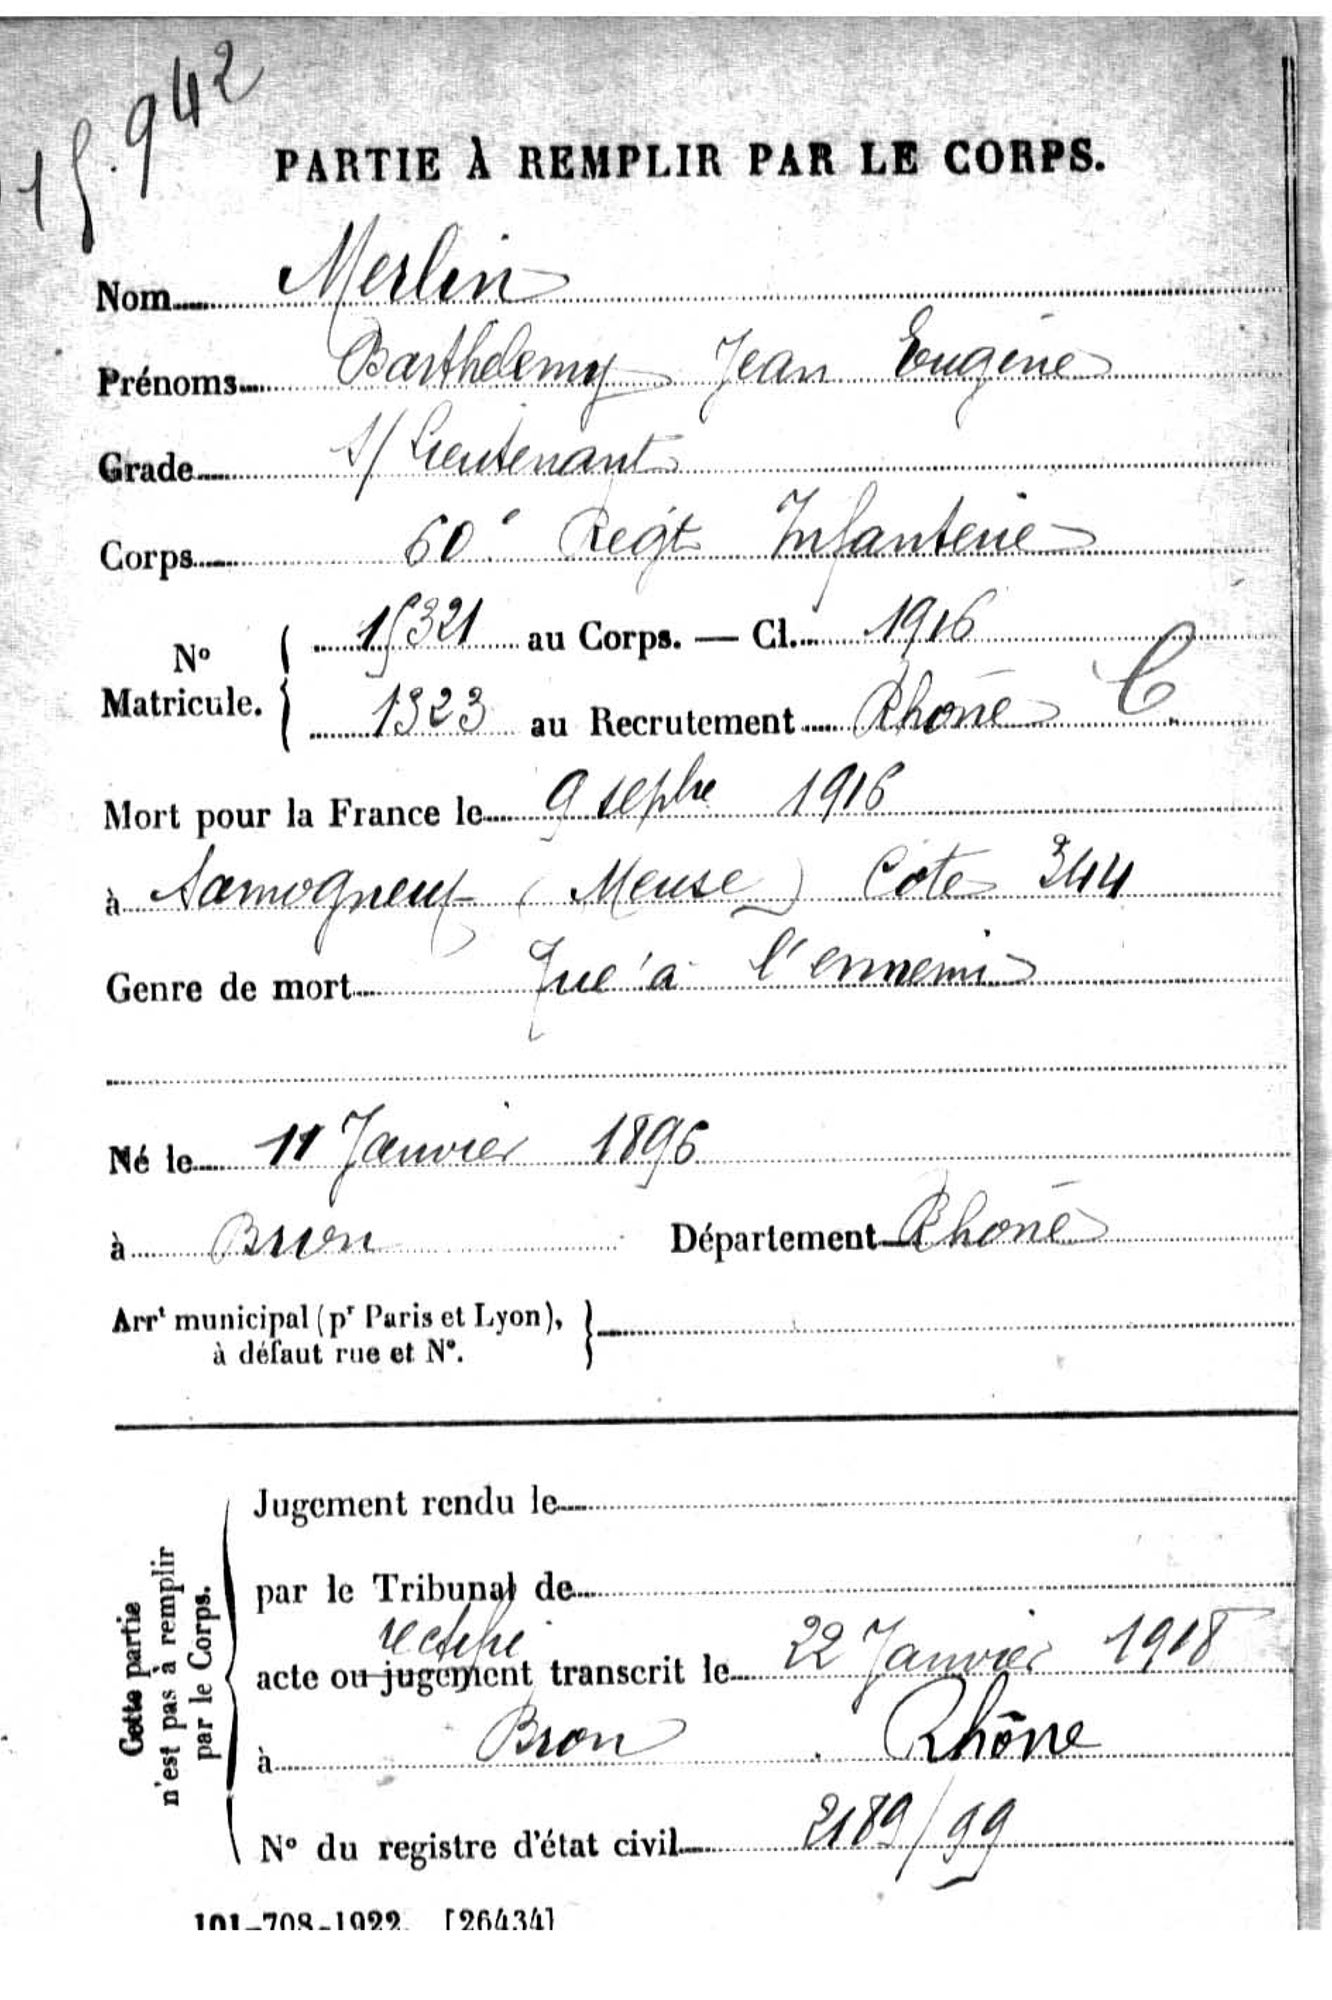 15.942
PARTIE À REMPLIR PAR LE CORPS.
Nom Merlin
Prénoms Barthélemy Jean Eugène
Grade S/Lieutenant
Corps 60e Régt Infanterie
No Matricule. { 15321 au Corps. — Cl. 1916
1323 au Recrutement Rhône C
Mort pour la France le 9 sepbre 1916
à Samogneux (Meuse) Côte 344
Genre de mort Tué à l'ennemi
Né le 11 Janvier 1896
à Bron Département Rhône
Arrt municipal (pr Paris et Lyon), }
à défaut rue et No.
Cette partie
n'est pas à remplir
par le Corps.
Jugement rendu le
par le Tribunal de
rectifié
acte ou jugement transcrit le 22 Janvier 1918
à Bron Rhône
No du registre d'état civil 2189/99
101-708-1922. [26434]